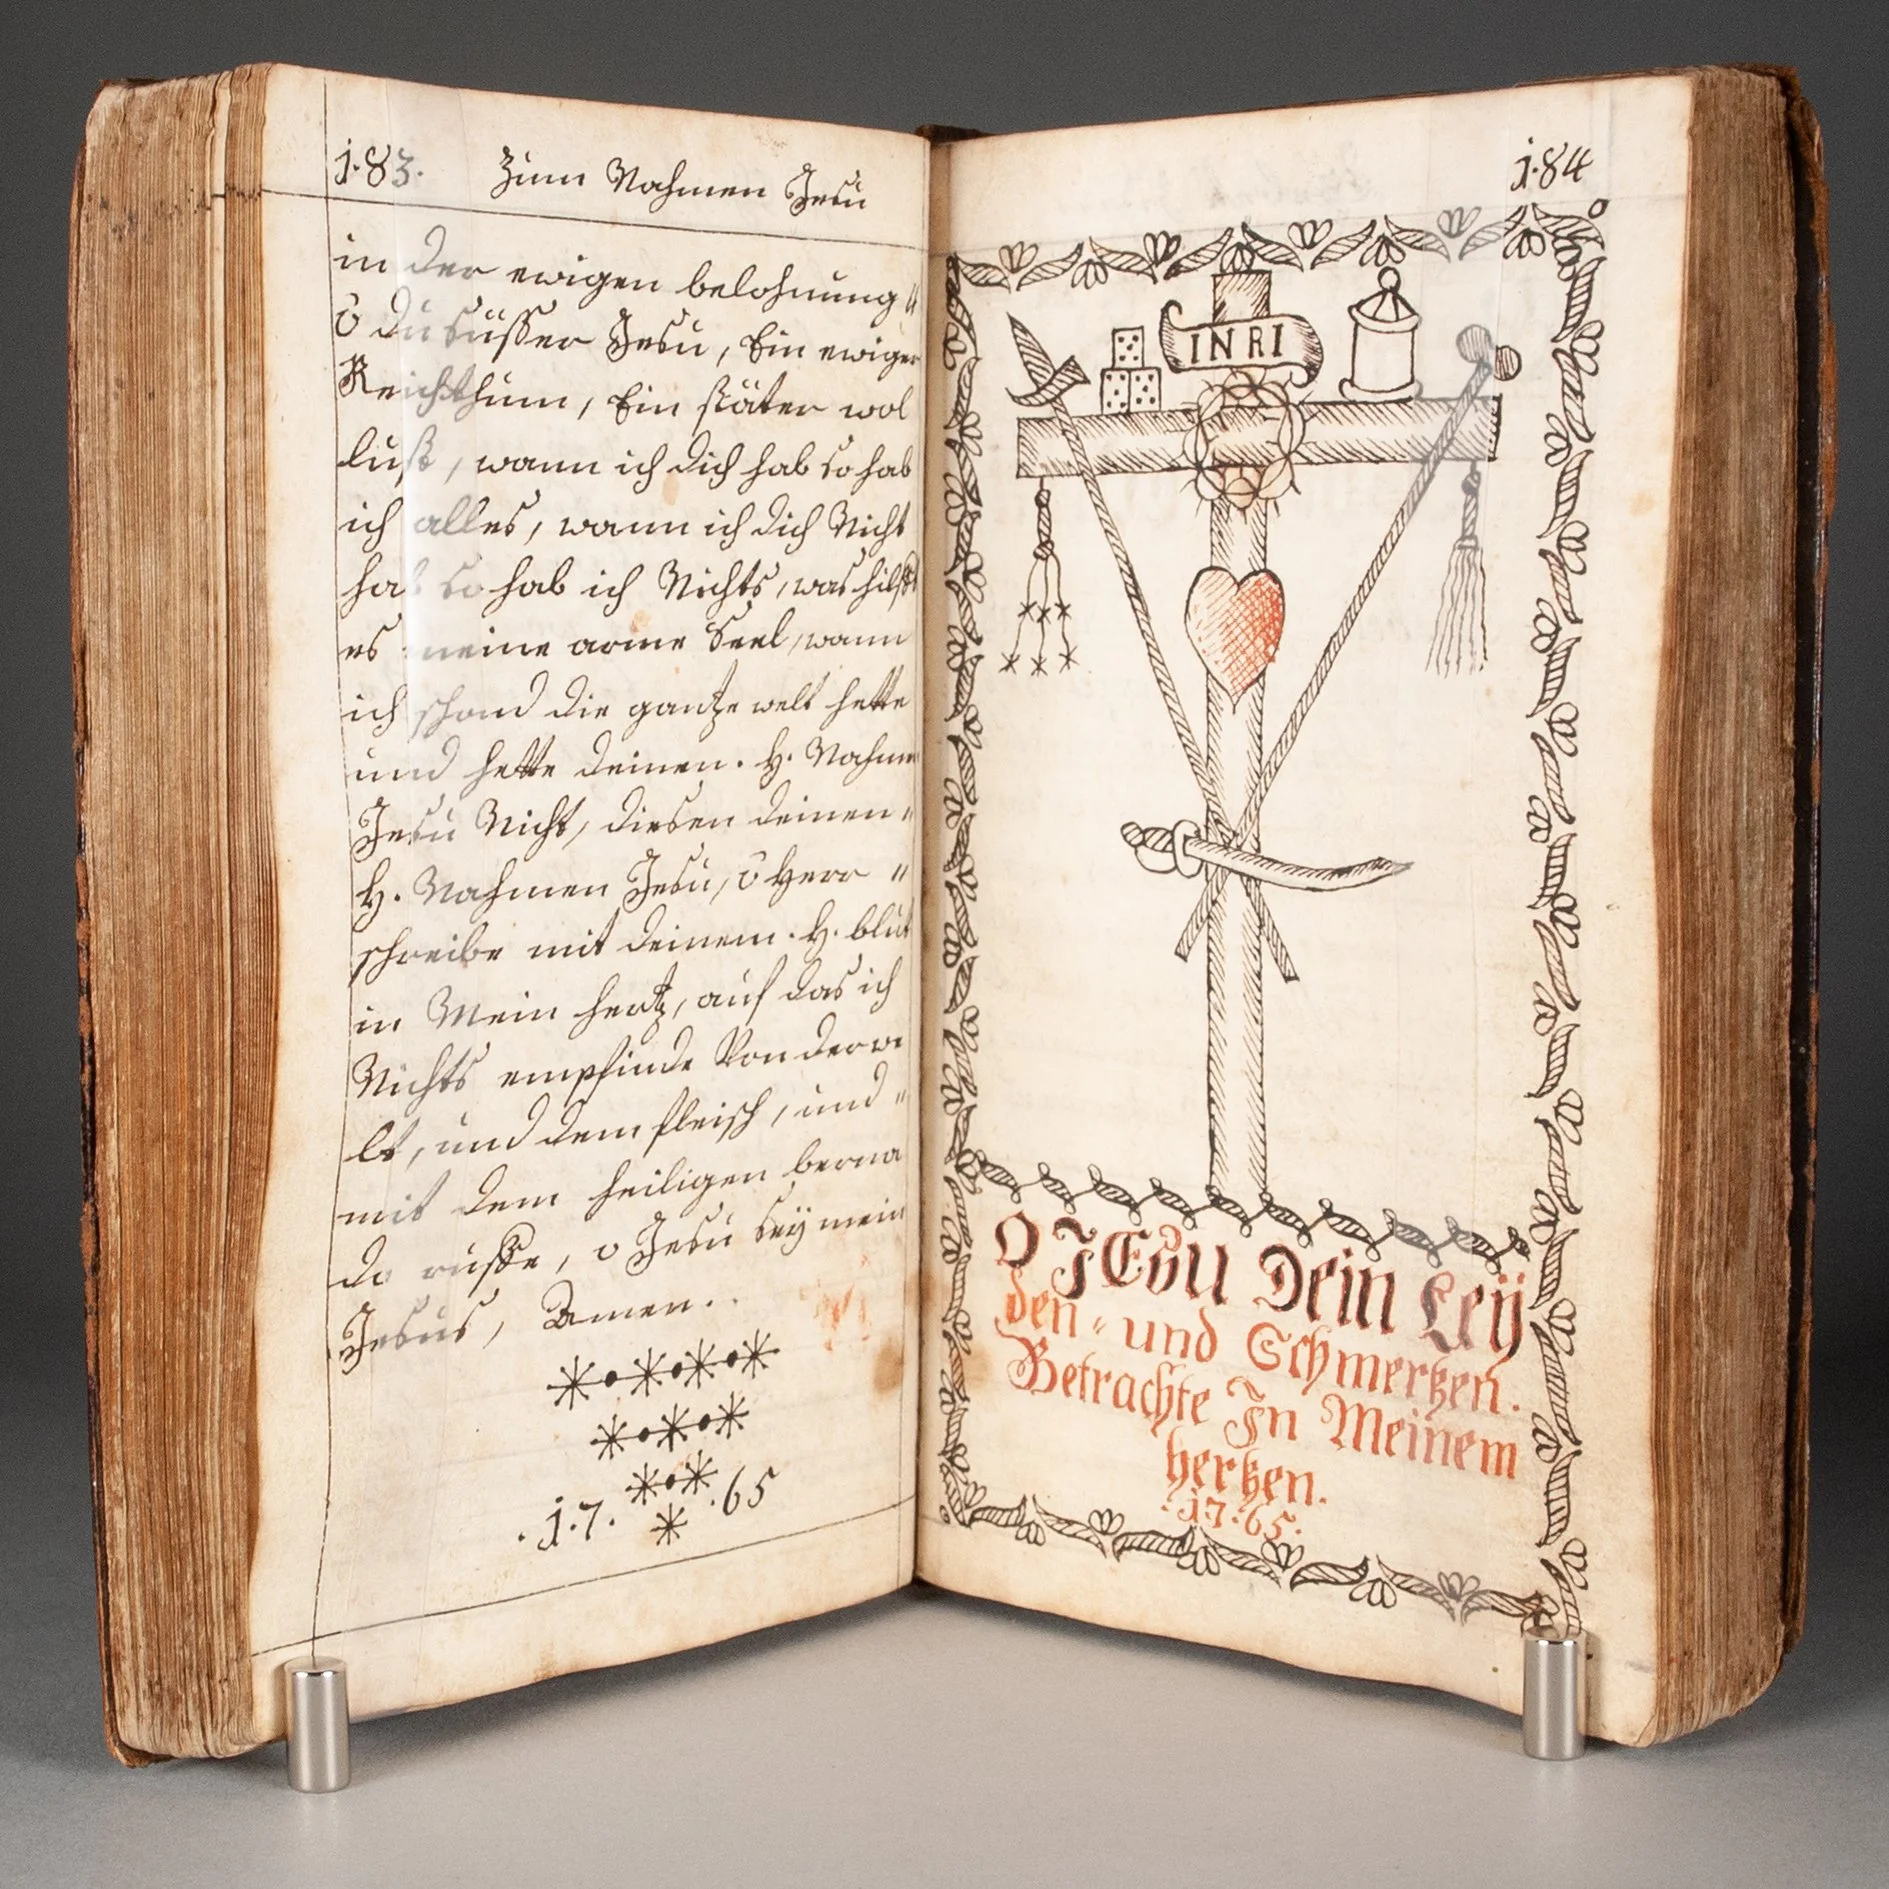 183. Zum Nahmen Jesu
in der ewigen belohnung
ô du süsser Jesu, Ein ewiger
Reichthum, Ein stäter wol
lust, wann ich dich hab so hab
ich alles, wann ich dich Nicht
hab so hab ich Nichts, was hilfft
es meine arme Seel, wann
ich schond die gantze welt hette
und hette deinen. H. Nahmen
Jesu Nicht, diesen deinen "
H. Nahmen Jesu, ô Herr "
schreibe mit deinem. H. blut
in Mein hertz, auf das ich
Nichts empfinde Von der we
lt, und dem fleisch, und "
mit dem heiligen berna
do ruffe, o Jesu seÿ mein
Jesus, Amen.
.17. 65
184
INRI
O JESU Dein Leÿ
den - und Schmertzen.
Betrachte In Meinem
hertzen.
.17.65.